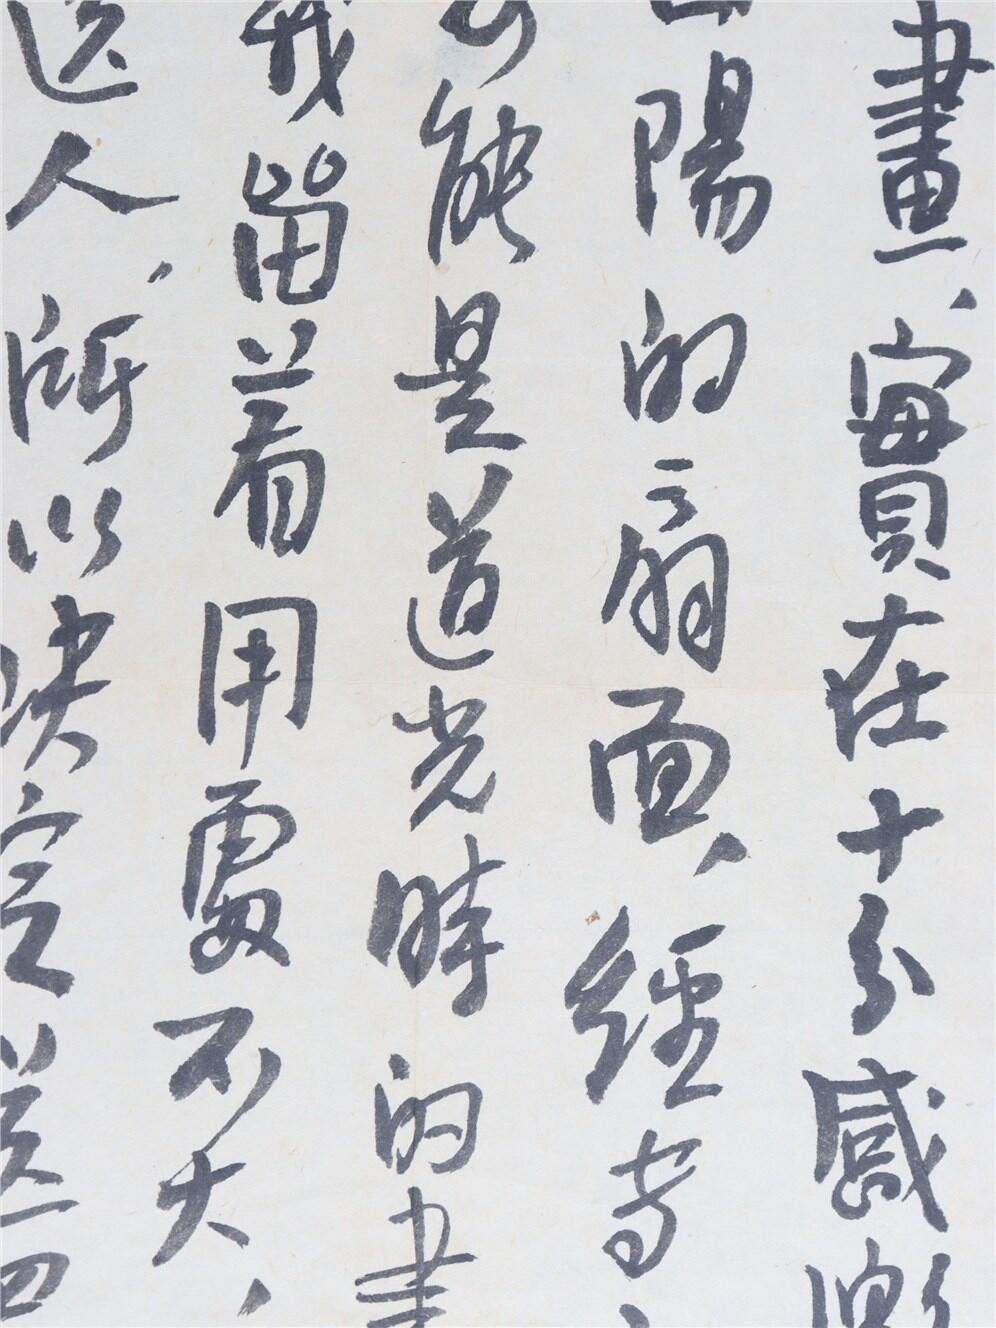 畫、實在十分感謝
陽的扇面、經考
能是道光時的畫
我留着用處不大、
送人、所以決定送回